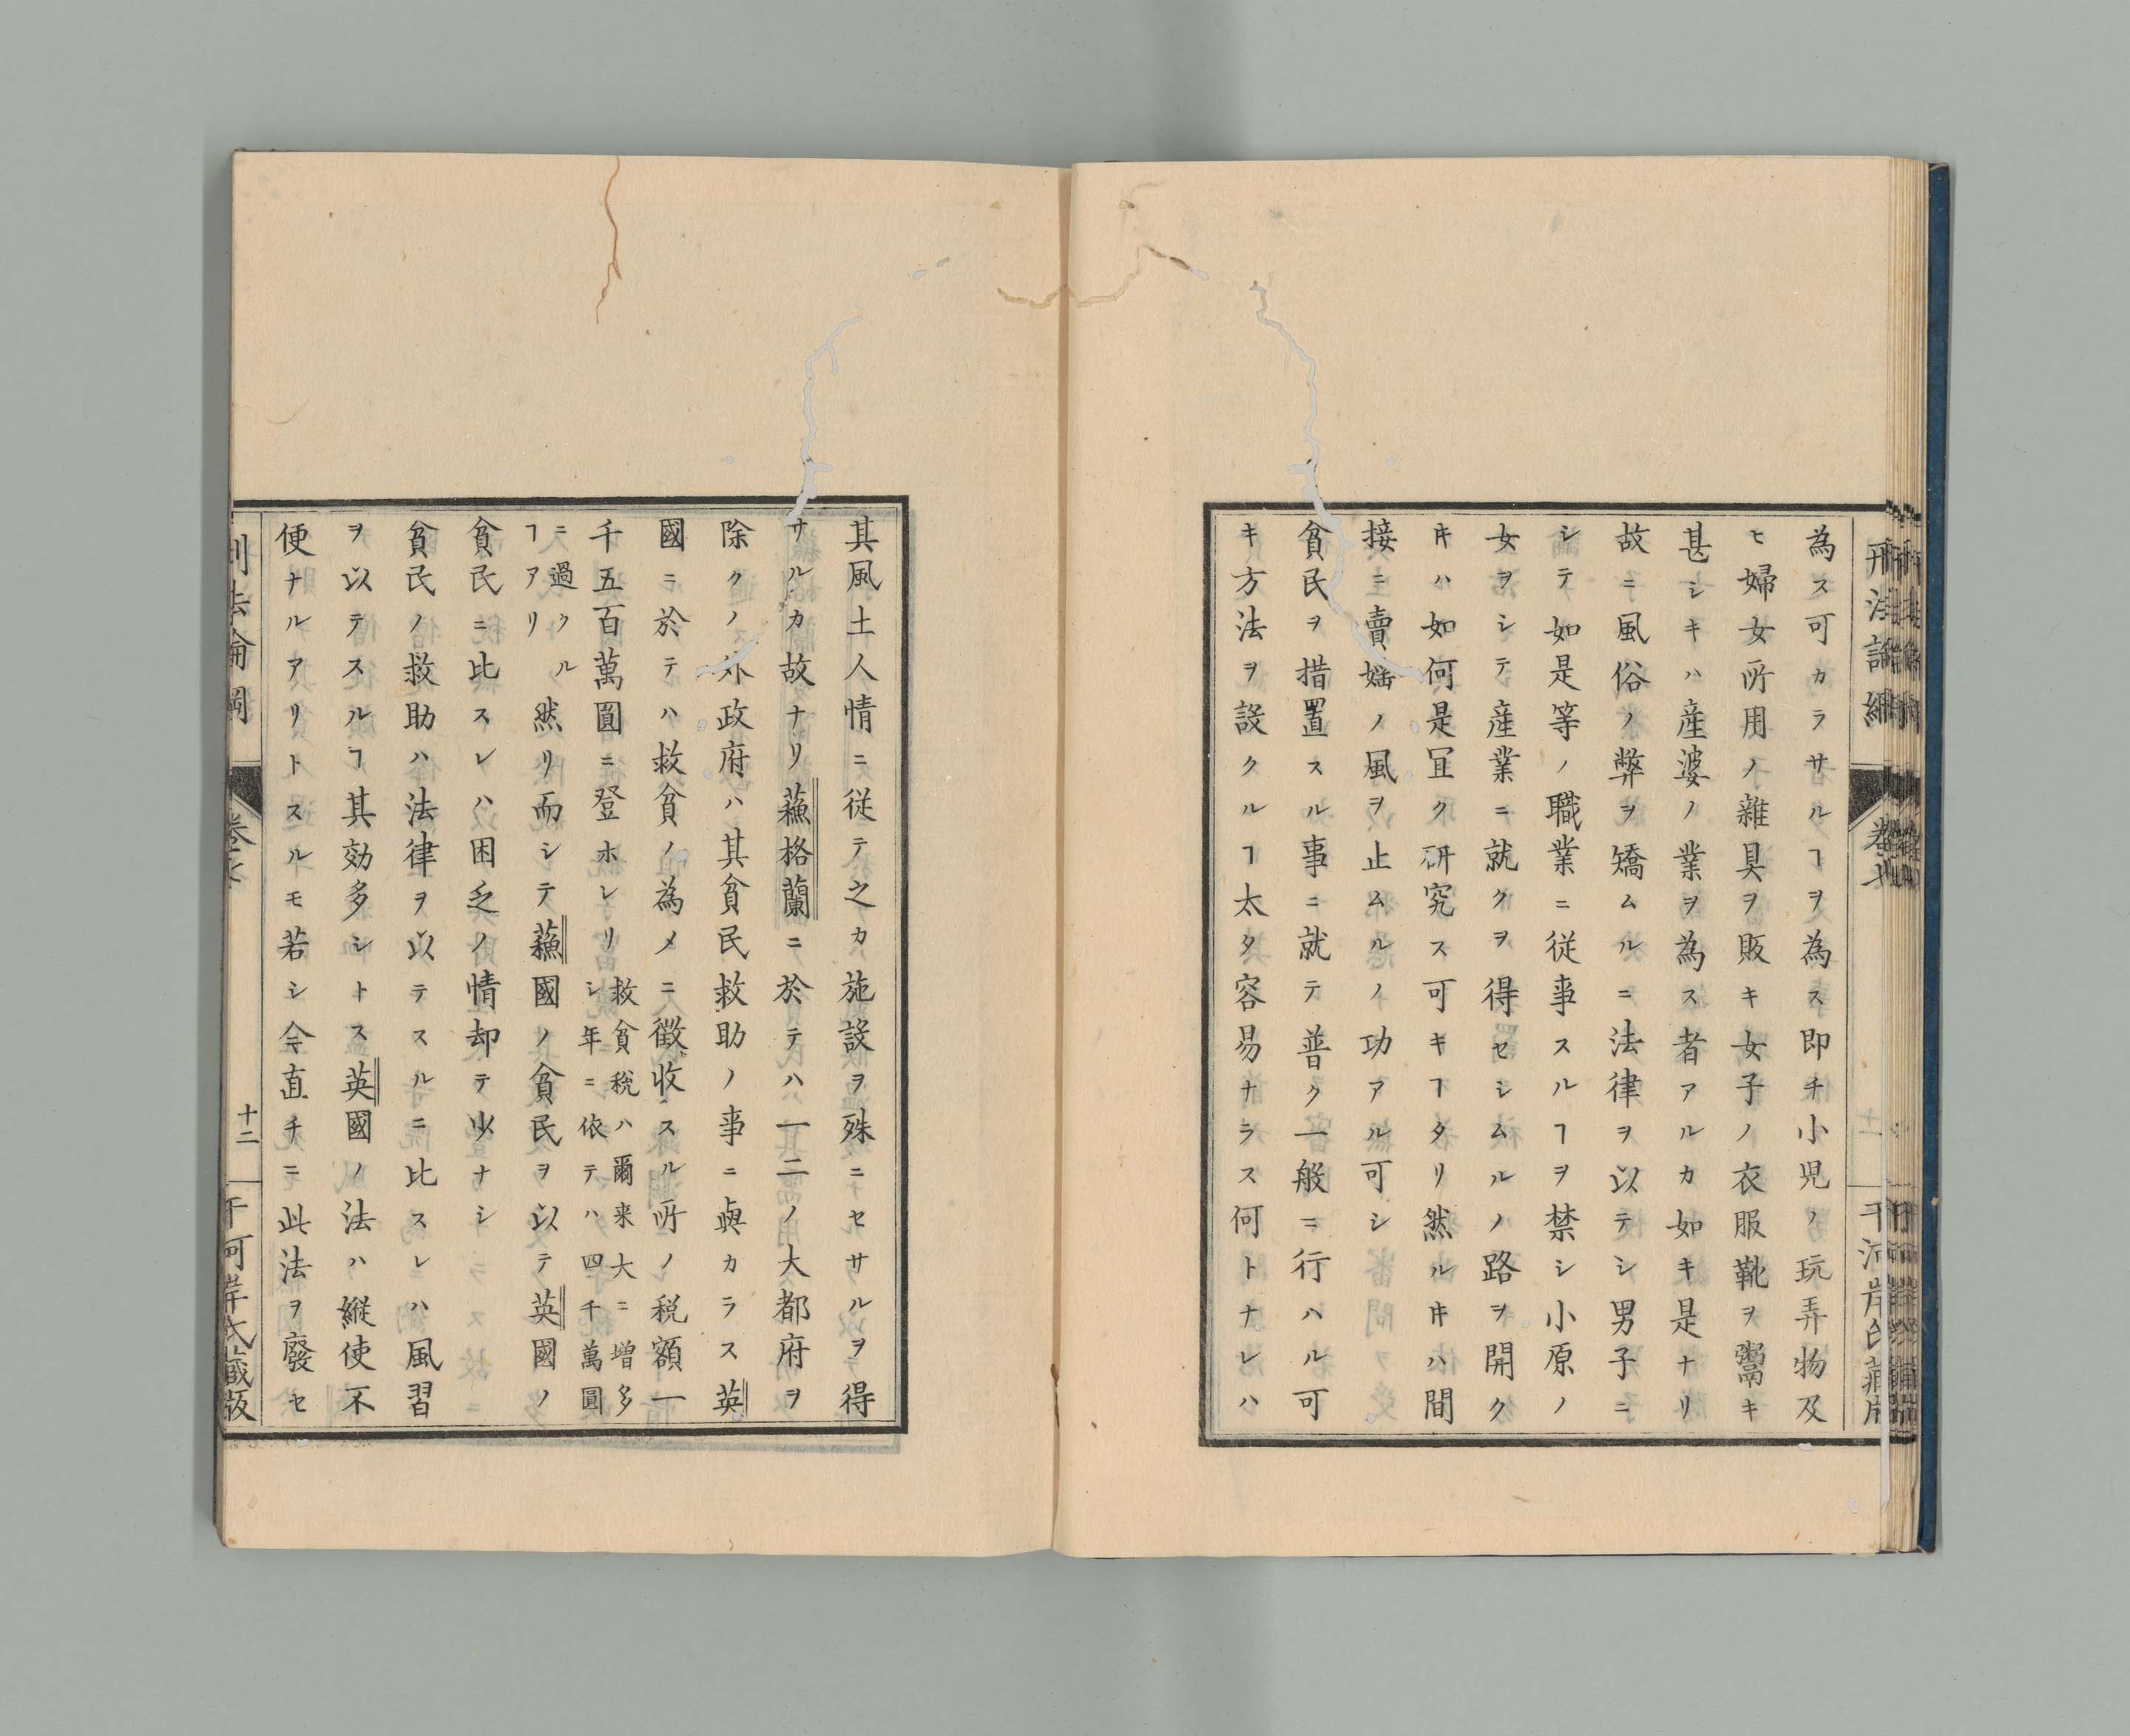 為ス可カラサルヿヲ為ス即チ小児ノ玩弄物及
ヒ婦女所用ノ雜具ヲ販キ女子ノ衣服靴ヲ鬻キ
甚シキハ産婆ノ業ヲ為ス者アルカ如キ是ナリ
故ニ風俗ノ弊ヲ矯ムルニ法律ヲ以テシ男子ニ
シテ如是等ノ職業ニ従事スルヿヲ禁シ小原ノ
女ヲシテ産業ニ就クヲ得セシムルノ路ヲ開ク
キハ如何是冝ク研究ス可キヿタリ然ルキハ間
接ニ賣婬ノ風ヲ止ムルノ功アル可シ
貧民ヲ措置スル事ニ就テ普ク一般ニ行ハル可
キ方法ヲ設クルヿ太タ容易ナラス何トナレハ
其風土人情ニ従テ之カ施設ヲ殊ニセサルヲ得
サルカ故ナリ蘓格蘭ニ於テハ一二ノ大都府ヲ
除クノ外政府ハ其貧民救助ノ事ニ與カラス英
國ニ於テハ救貧ノ為メニ徴收スル所ノ税額一
千五百萬圓ニ登ホレリ救貧税ハ爾来大ニ増多シ年ニ依テハ四千萬圓
ニ過クルヿアリ然リ而シテ蘓國ノ貧民ヲ以テ英國ノ
貧民ニ比スレハ困乏ノ情却テ少ナシ
貧民ノ救助ハ法律ヲ以テスルニ比スレハ風習
ヲ以テスルヿ其効多シトス英國ノ法ハ縦使不
便ナルアリトスルモ若シ今直チニ此法ヲ廢セ
刑法論綱
卷之七
十二
干河岸氏藏版